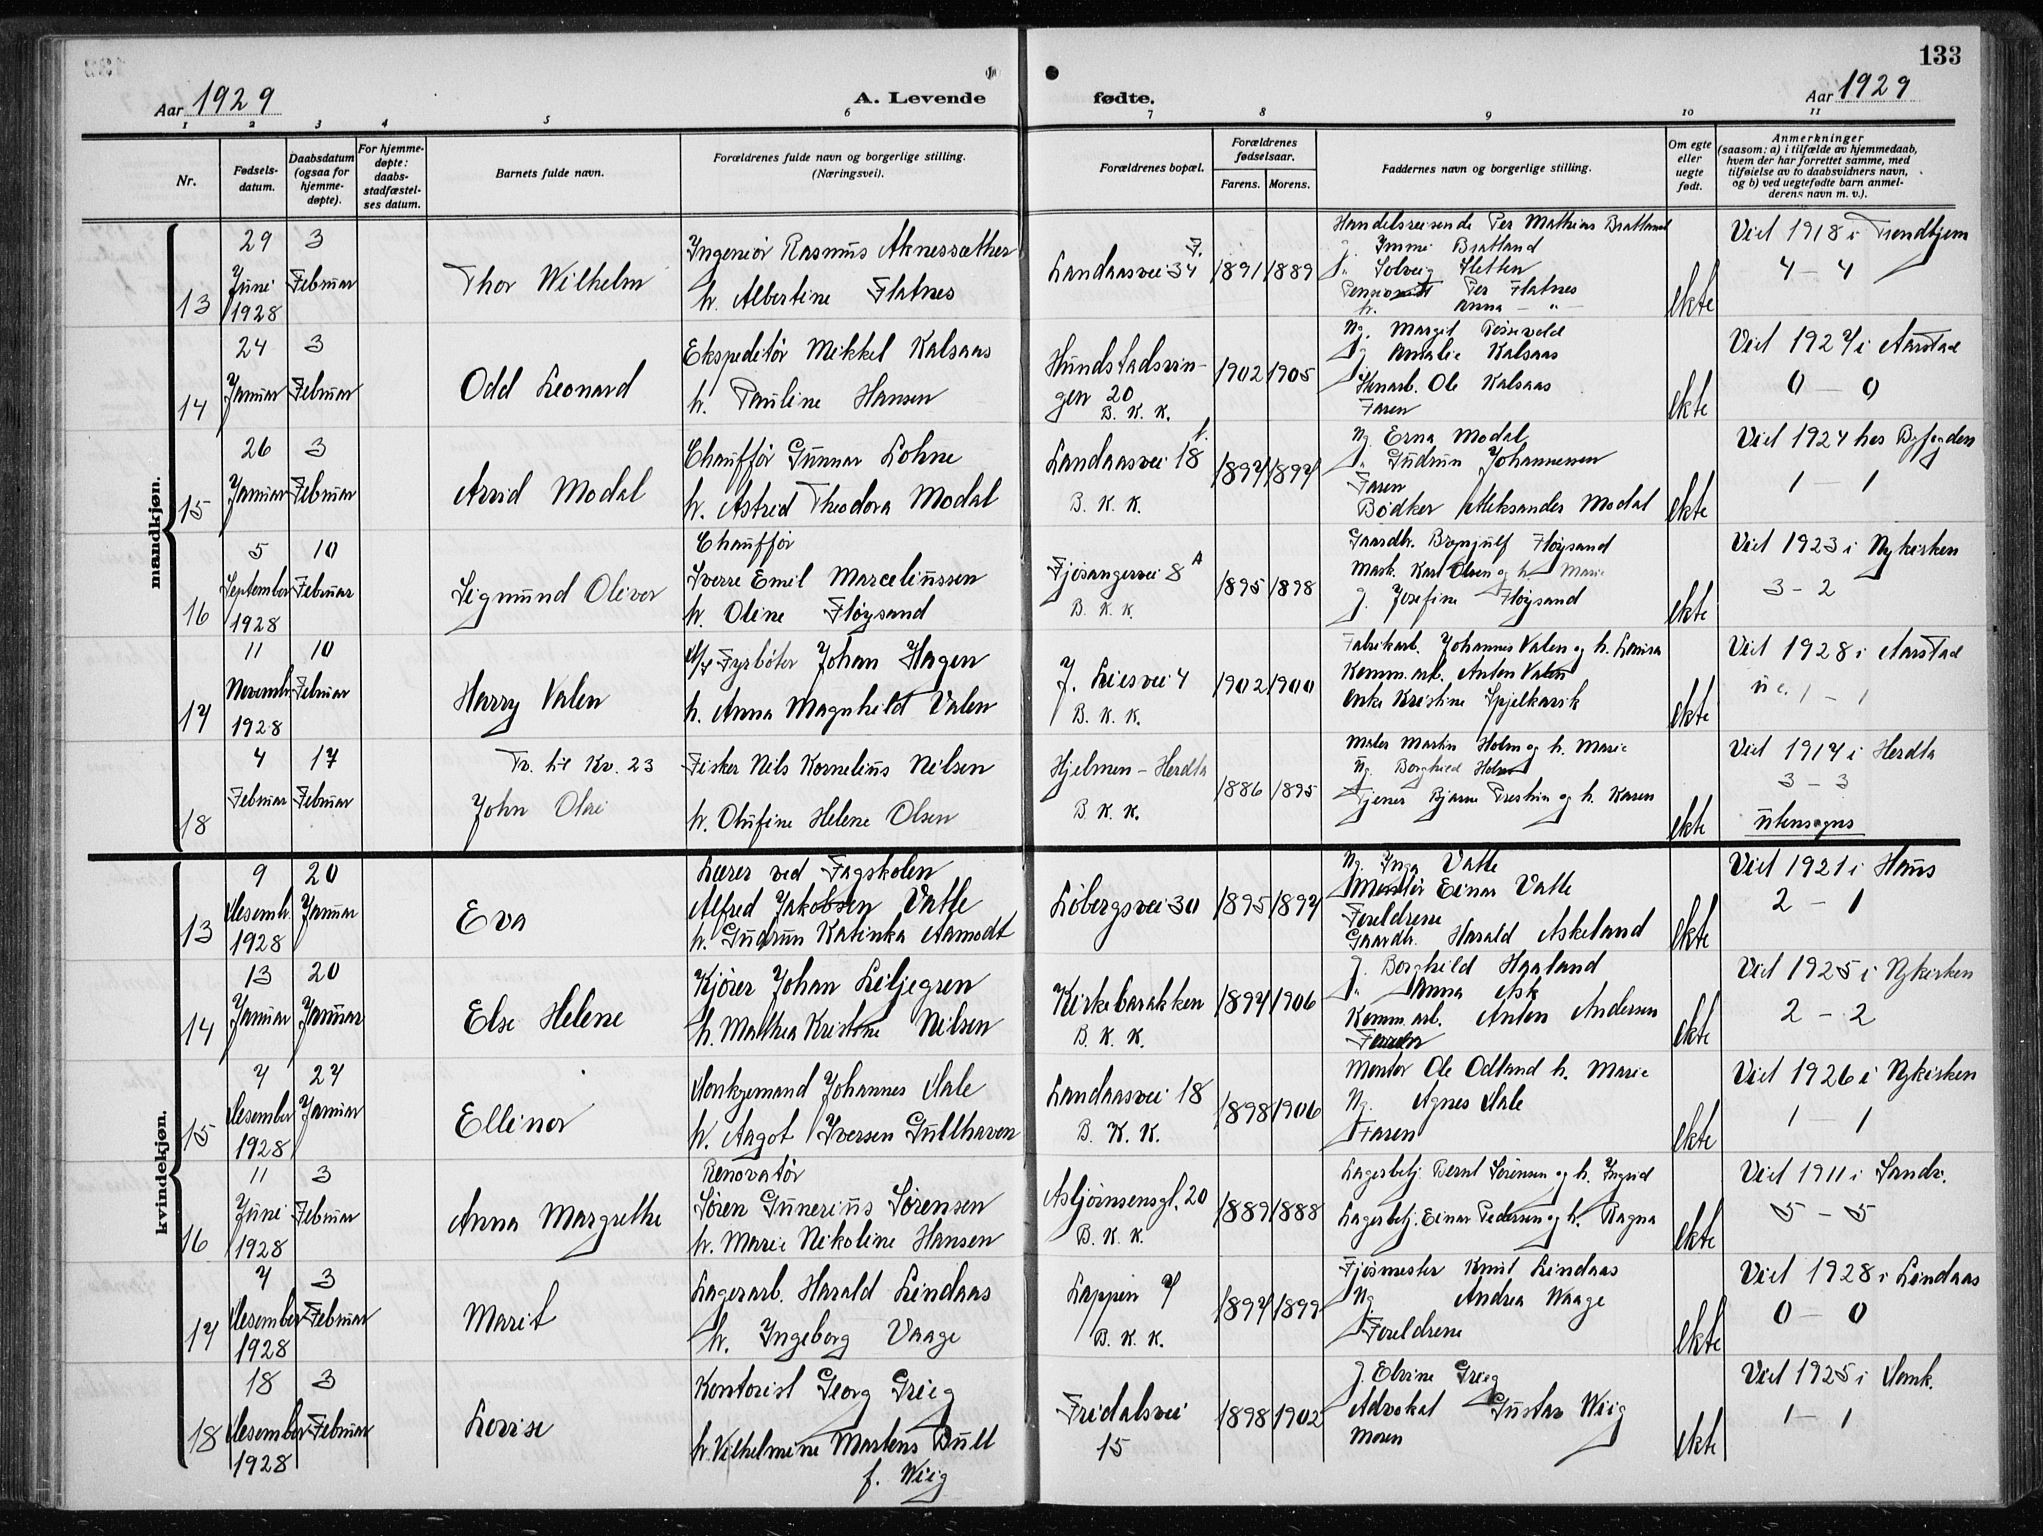 133
Aar 1929
A. Levende
fødte.
Aar 1929
1 2 3 4 5 6 7 8 9 10 11
Nr.
Fødsels-
datum.
Daabsdatum
(ogsaa for
hjemme-
døpte).
For hjemme-
døpte:
daabs-
stadfæstel-
ses datum.
Barnets fulde navn.
Forældrenes fulde navn og borgerlige stilling.
(Næringsvei).
Forældrenes bopæl.
Forældrenes
fødselsaar.
Farens. Morens.
Faddernes navn og borgerlige stilling.
Om egte
eller
uegte
født.
Anmerkninger
(saasom: a) i tilfælde av hjemmedaab,
hvem der har forrettet samme, med
tilføielse av to daabsvidners navn,
og b) ved uegtefødte barn anmel-
derens navn m. v.).
mandkjøn.
13
29
Juni
1928
3
Februar
Thor Wilhelm
Ingeniør Rasmus Aknessæther
h. Albertine Flatnes
F.
Landaasvei 34
1891 1889
Handelsreisende Per Mathias Bratland
Bratland
J. Solveig Sletten
Per Flatnes
h. Anna — " —
ekte
Viet 1918 i Trondhjem
4 – 4
14
24
Januar
3
Februar
Odd Leonard
Ekspeditør Mikkel Kalsaas
h. Pauline Hansen
Hundstadsvin-
gen 20
B. K. K.
1902 1905
Ug. Margit
J. Amalie Kalsaas
Ole Kalsaas
Faren
ekte
Viet 1927 i Aarstad
0 – 0
15
26
Januar
3
Februar
Arvid Modal
Chauffør Gunnar Lohne
h. Astrid Theodora Modal
Landaasvei 18
B. K. K.
1897 1897
Ug. Erna Modal
J. Gudrun Johannesen
Faren
Bødker Aleksander Modal
ekte
Viet 1924 hos Byfogden
1 – 1
16
5
September
1928
10
Februar
Sigmund Oliver
Chauffør
Sverre Emil Marceliussen
h. Oline Fløysand
Fjøsangervei 8 A
B. K. K.
1895 1898
Gaardbr. Brynjulf Fløysand
Mask. Karl Olsen og h. Marie
J. Josefine Fløysand
ekte
Viet 1923 i Nykirken
3 - 2
17
11
Novemb.
1928
10
Februar
Harry Valen
Fyrbøter Johan Hagen
h. Anna Magnhild Valen
J. Liesvei 4
B. K. K.
1902 1900
Fabrikarb. Johannes Valen og h. Lovisa
Komm. arb. Anton Valen
Enke Kristine Spjelkavik
ekte
Viet 1928 i Aarstad
1 – 1
18
4
Februar
17
Februar
Tv. til Kv. 23
John Olai
Fisker Nils Kornelius Nilsen
h. Olufine Helene Olsen
Hjelmen – Herdla
B. K. K.
1886 1895
Maler Martin Holm og h. Marie
Ug. Borghild Holm
Tjener Bjarne Trestin og h. Karen
ekte
Viet 1917 i Herdla
3 – 3
utensogns
kvindekjøn.
13
9
Desemb.
1928
20
Januar
Eva
Lærer ved Fagskolen
Alfred Jakobsen Vatle
h. Gudrun Katinka Aamodt
Løbergsvei 30
1895 1897
Ug. Inga Vatle
Montør Einar Vatle
Foreldrene
Gaardbr. Harald Askeland
ekte
Viet 1921 i Haus
2 – 1
14
13
Januar
20
Januar
Else Helene
Kjører Johan Liljegren
h. Mathea Kristine Nilsen
Kirkebarakken
B. K. K.
1897 1906
J. Borghild Haaland
J. Anna Ask
Komm. arb. Anton Andersen
ekte
Viet 1925 i Nykirken
2 – 2
15
7
Desember
1928
27
Januar
Ellinor
Donkymand Johannes Dale
h. Aagot Iversen Gullhaven
Landaasvei 18
B. K. K.
1898 1906
Montør Ole Odland h. Marie
Ug. Agnes Dale
Faren
ekte
Viet 1926 i Nykirken
1 – 1
16
11
Juni
1928
3
Februar
Anna Margrethe
Renovatør
Søren Gunerius Sørensen
h. Marie Nikoline Hansen
Asbjørnsensgt. 20
B. K. K.
1889 1888
Lagerbetj. Bernt Sørensen og h. Ingrid
Lagerbetj. Einar Pedersen og h. Ragna
ekte
Viet 1911 i Sandv.
5 – 5
17
7
Desember
1928
3
Februar
Marit
Lagerarb. Harald Lindaas
h. Ingeborg Vaage
Lappen 7
B. K. K.
1897 1899
Fjøsmester Knut Lindaas
Ug. Andrea Waage
Foreldrene
ekte
Viet 1928 i Lindaas
0 – 0
18
18
Desember
1928
3
Februar
Lovise
Kontorist Georg Grieg
h. Vilhelmine Martens Bull
f. Wiig
Fridalsvei
15
1898 1902
J. Elvine Grieg
Advokat Gustav Wiig
Moren
ekte
Viet 1925 i Domk.
1 – 1